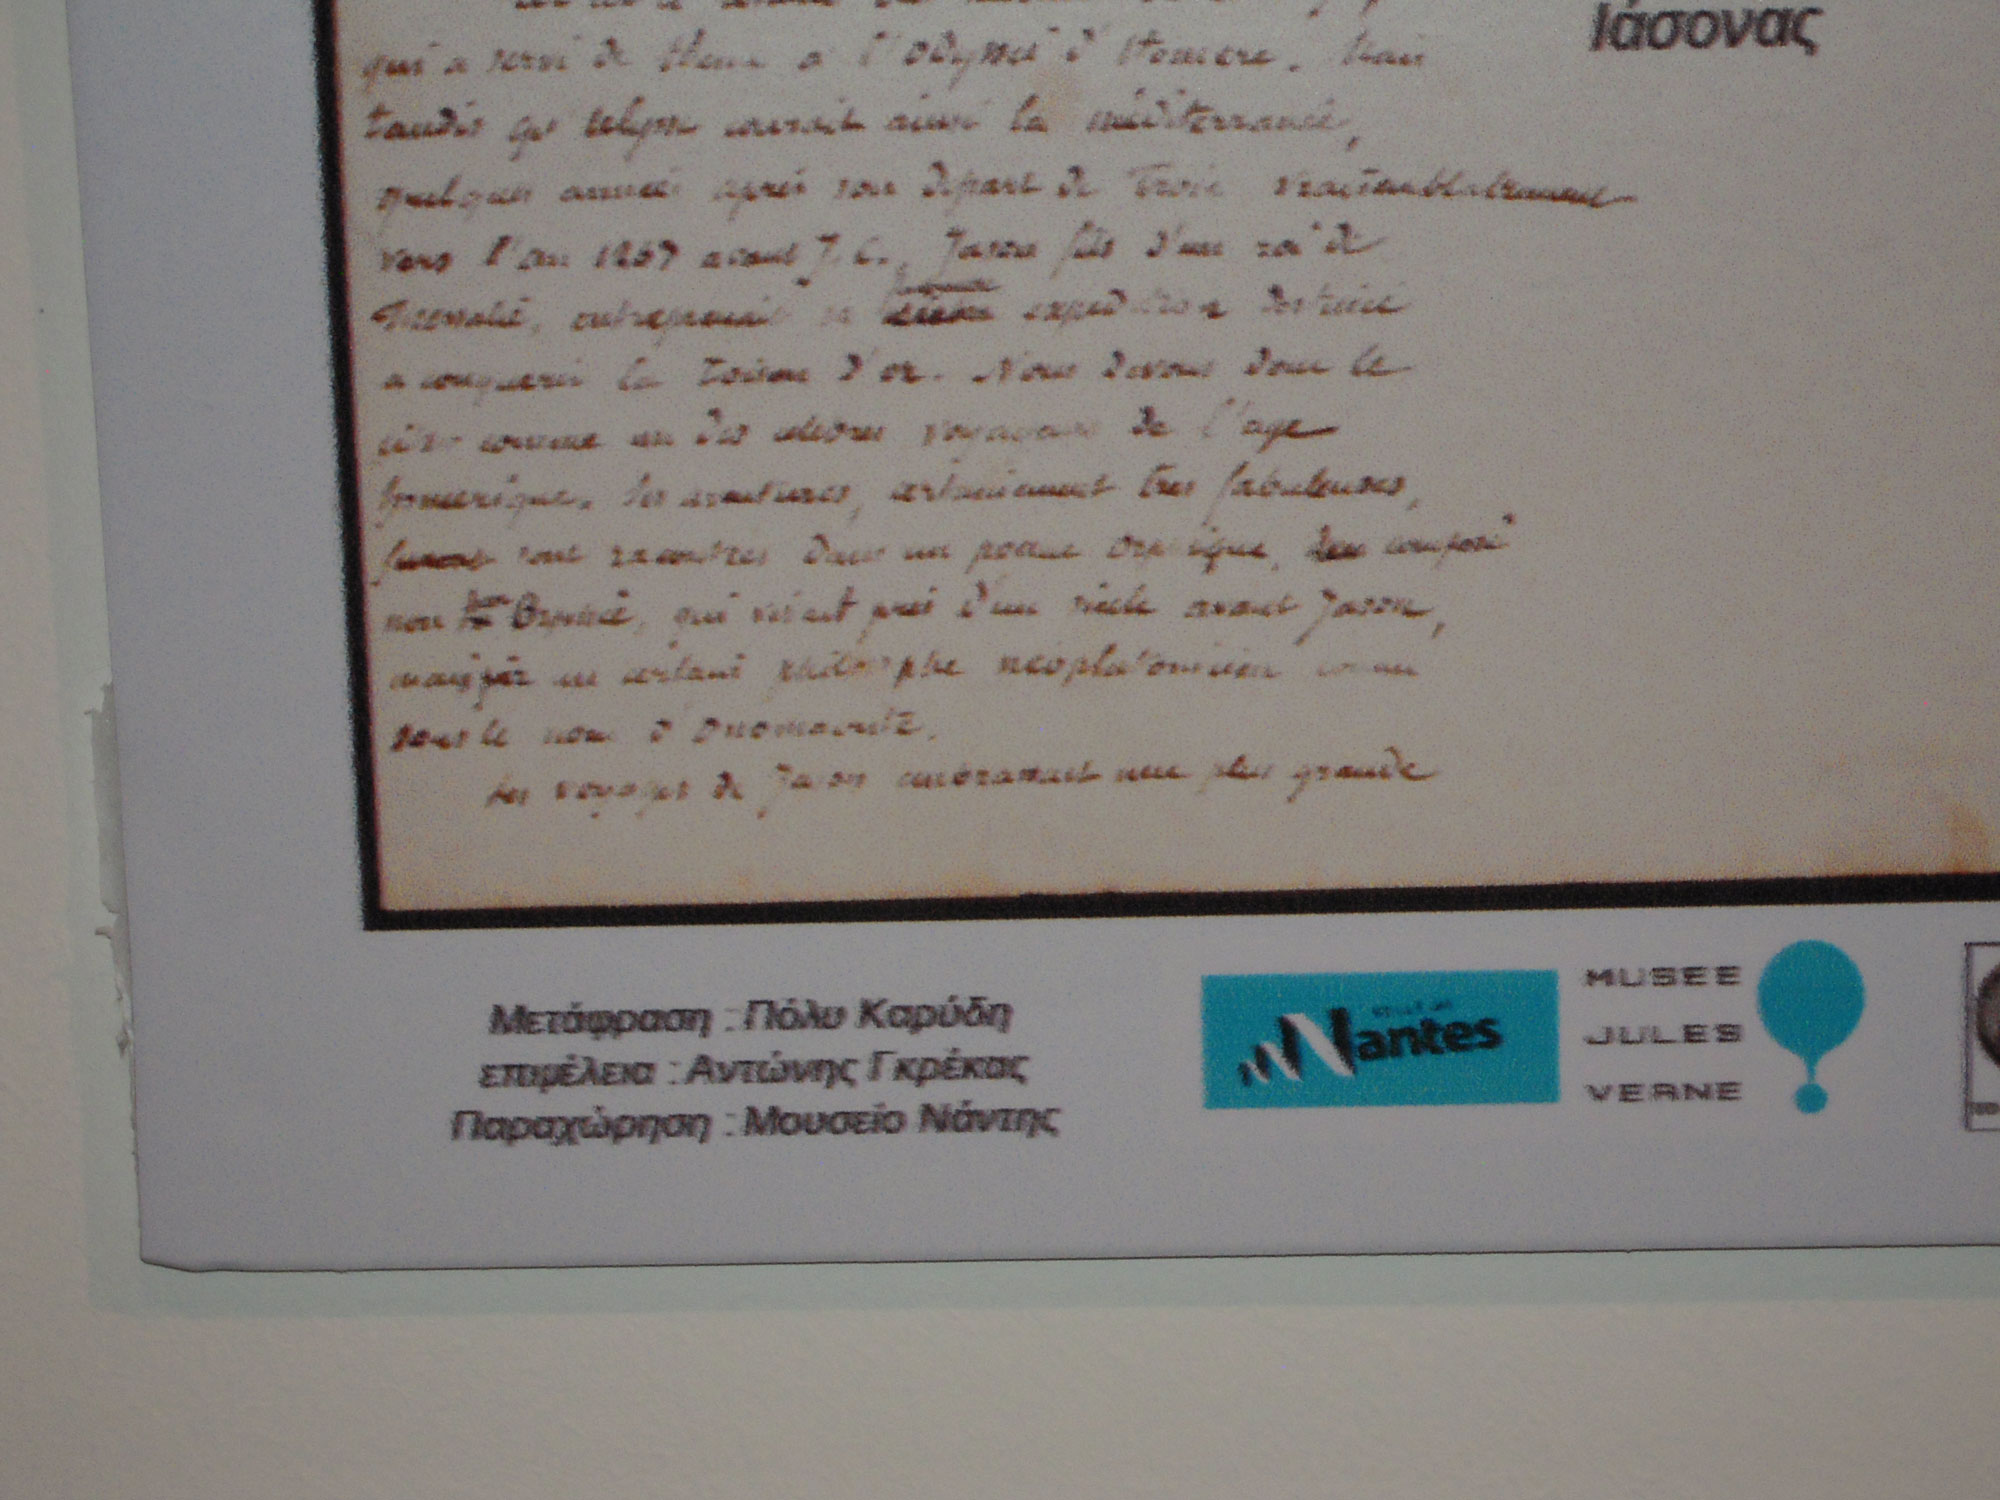 Ιάσονας
qui a servi de theme a l'odyssée d'Homere. Mais
tandis qu' Ulysse courait ainsi la méditerranée,
quelques années après son départ de Troie vraisemblablement
vers l'an 1267 avant J. C., Jason fils d'un roi de
Thessalie, entreprenait sa expédition destinée
a conquerir la toison d'or. Nous devons donc le
citer comme un des celebres voyageurs de l'age
homerique. Ses aventures, certainement tres fabuleuses,
furent sont racontées dans un poeme orphique, composé
non Orphée, qui vivait pres d'un siècle avant Jason,
mais par un certain philosophe neoplatonicien connu
sous le nom d'Onomacrite.
Les voyages de Jason embrassaient une plus grande
Μετάφραση : Πόλυ Καρύδη
επιμέλεια : Αντώνης Γκρέκας
Παραχώρηση : Μουσείο Νάντης
Nantes
MUSEE
JULES
VERNE